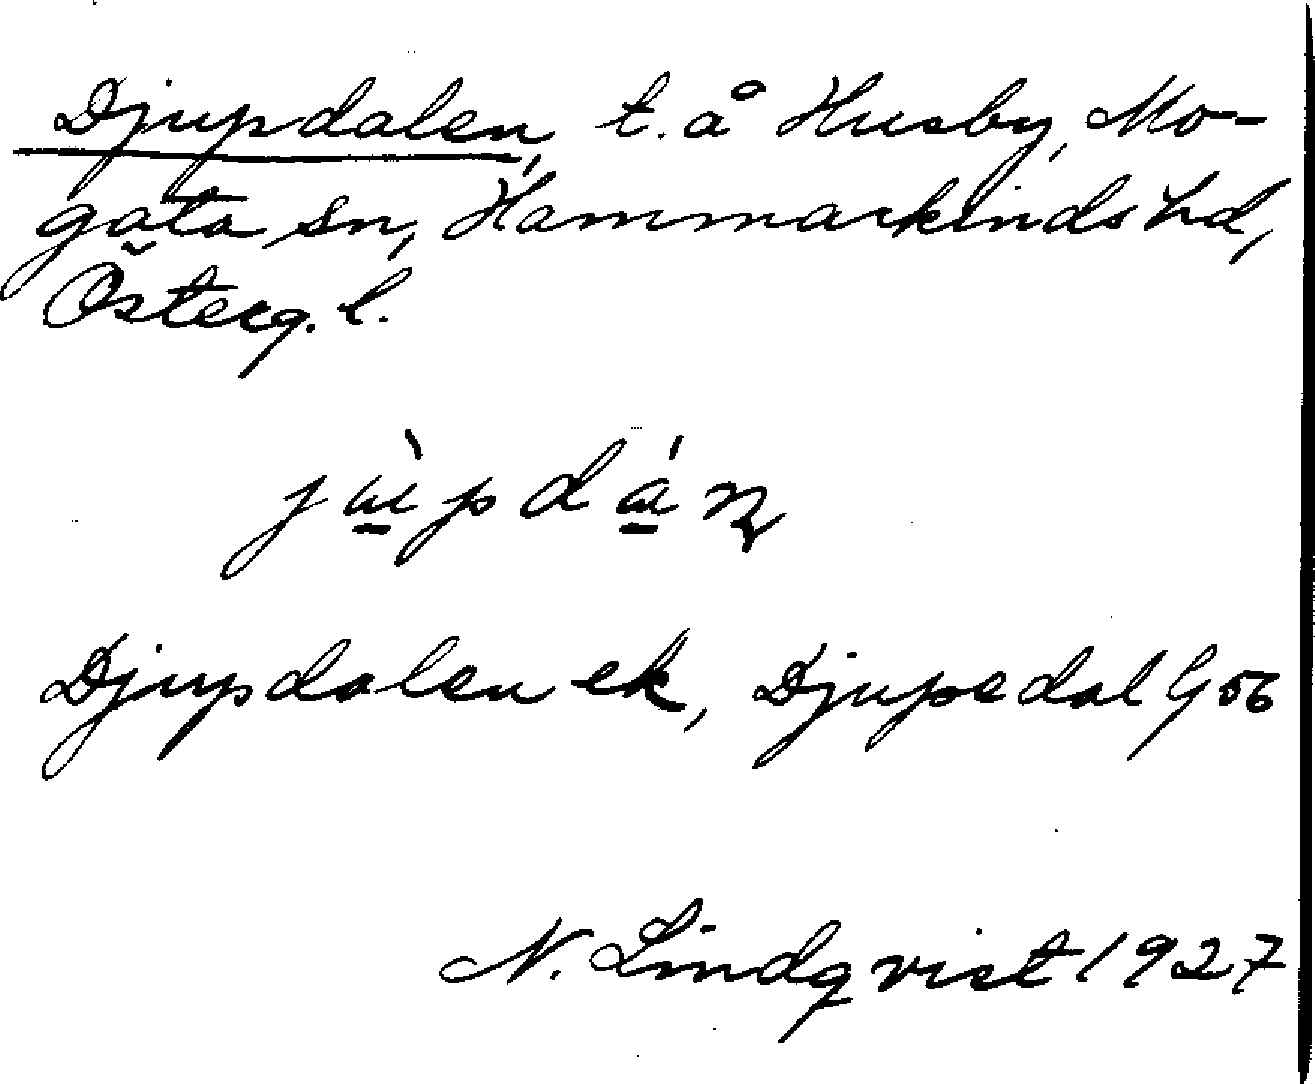 Djupdalen, t. å Husby, Mo-
gata sn, Hammarkinds hd,
Österg. l.
Djupdalen ek, Djupedal G 56
N. Lindqvist 1927